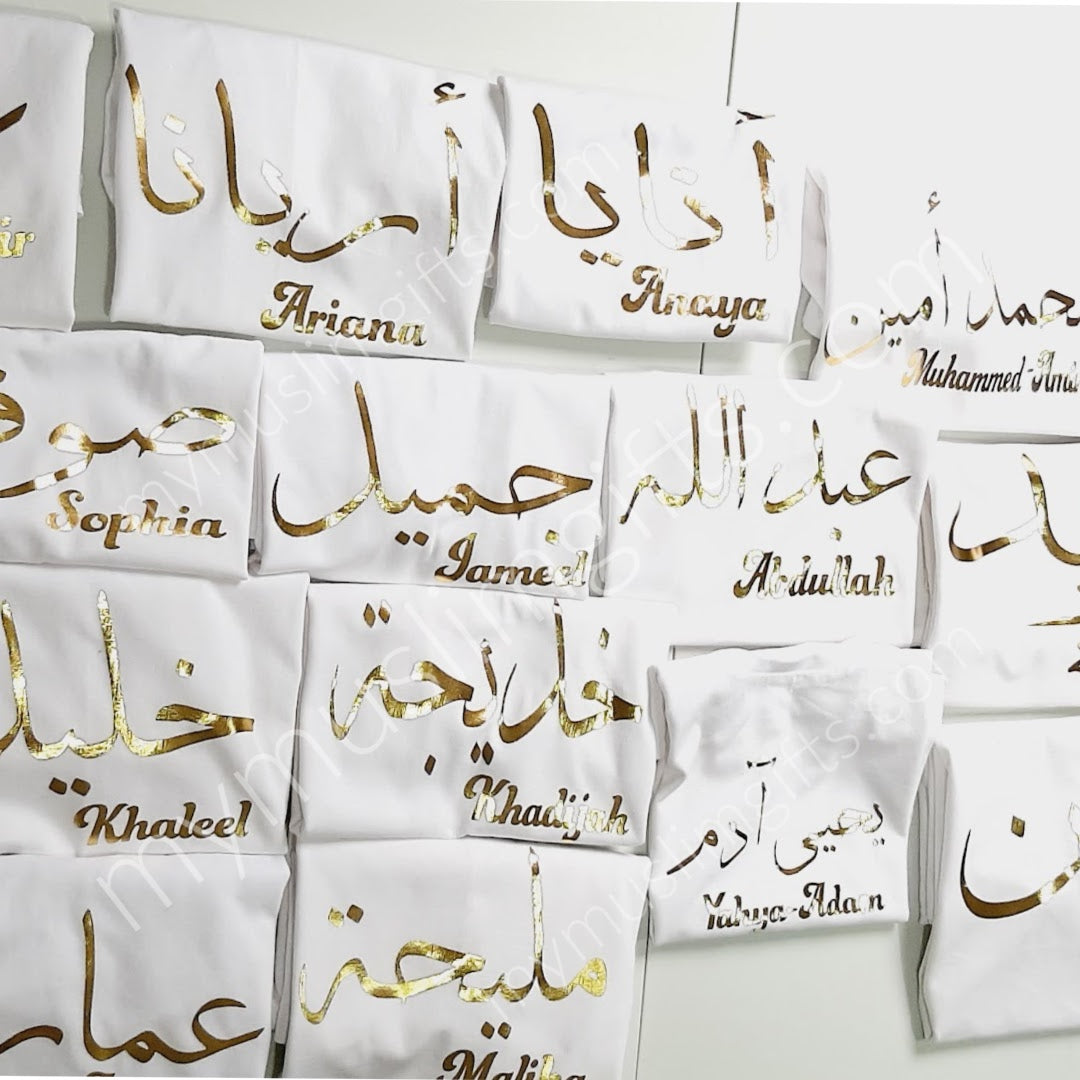 أريانا
Ariana
أنايا
Anaya
أمين
Sophia
جميل
Jameel
عبد الله
Abdullah
خليل
Khaleel
خديجة
Khadijah
يحيى آدم
Yahya-Adam
مليحة
Maliha
mymuslimgifts.com
mymuslimgifts.com
mymuslimgifts.com